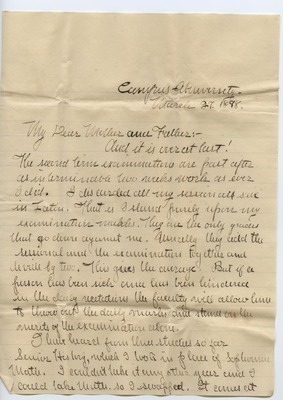 Campus University
March 27, 1898.
My Dear Mother and Father:-
And it is over at last!
The second term examinations are past after
as interminable two weeks work as ever
I did. I discarded all my sessionals save
in Latin. That is I stand purely upon my
examination marks. They are the only grades
that go down against me. Usually they add the
sessional and the examination together and
divide by two. This gives the average. But if a
person has been sick and has been hindered
in the daily recitations the faculty will allow him
to throw out the daily marks and stand on the
merits of the examination alone.
I have heard from three studies so far
Senior History, which I took in place of Sophomore
Math. I couldn't take it any other year and I
could take Math. so I swapped. It comes at